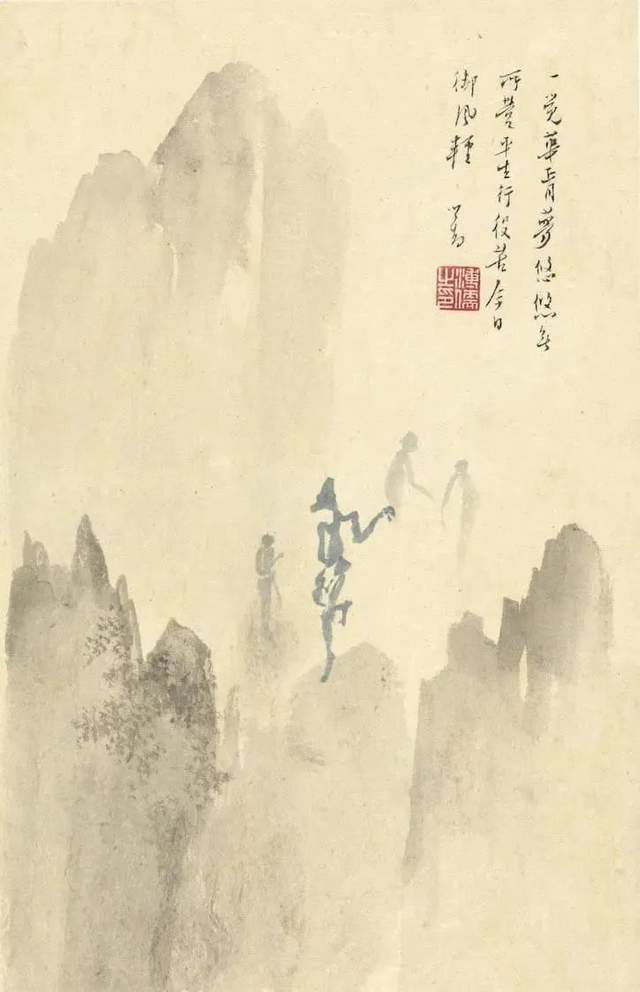 一覺華胥夢悠悠無
所營平生行役苦今日
御風輕 心畬
溥儒之印